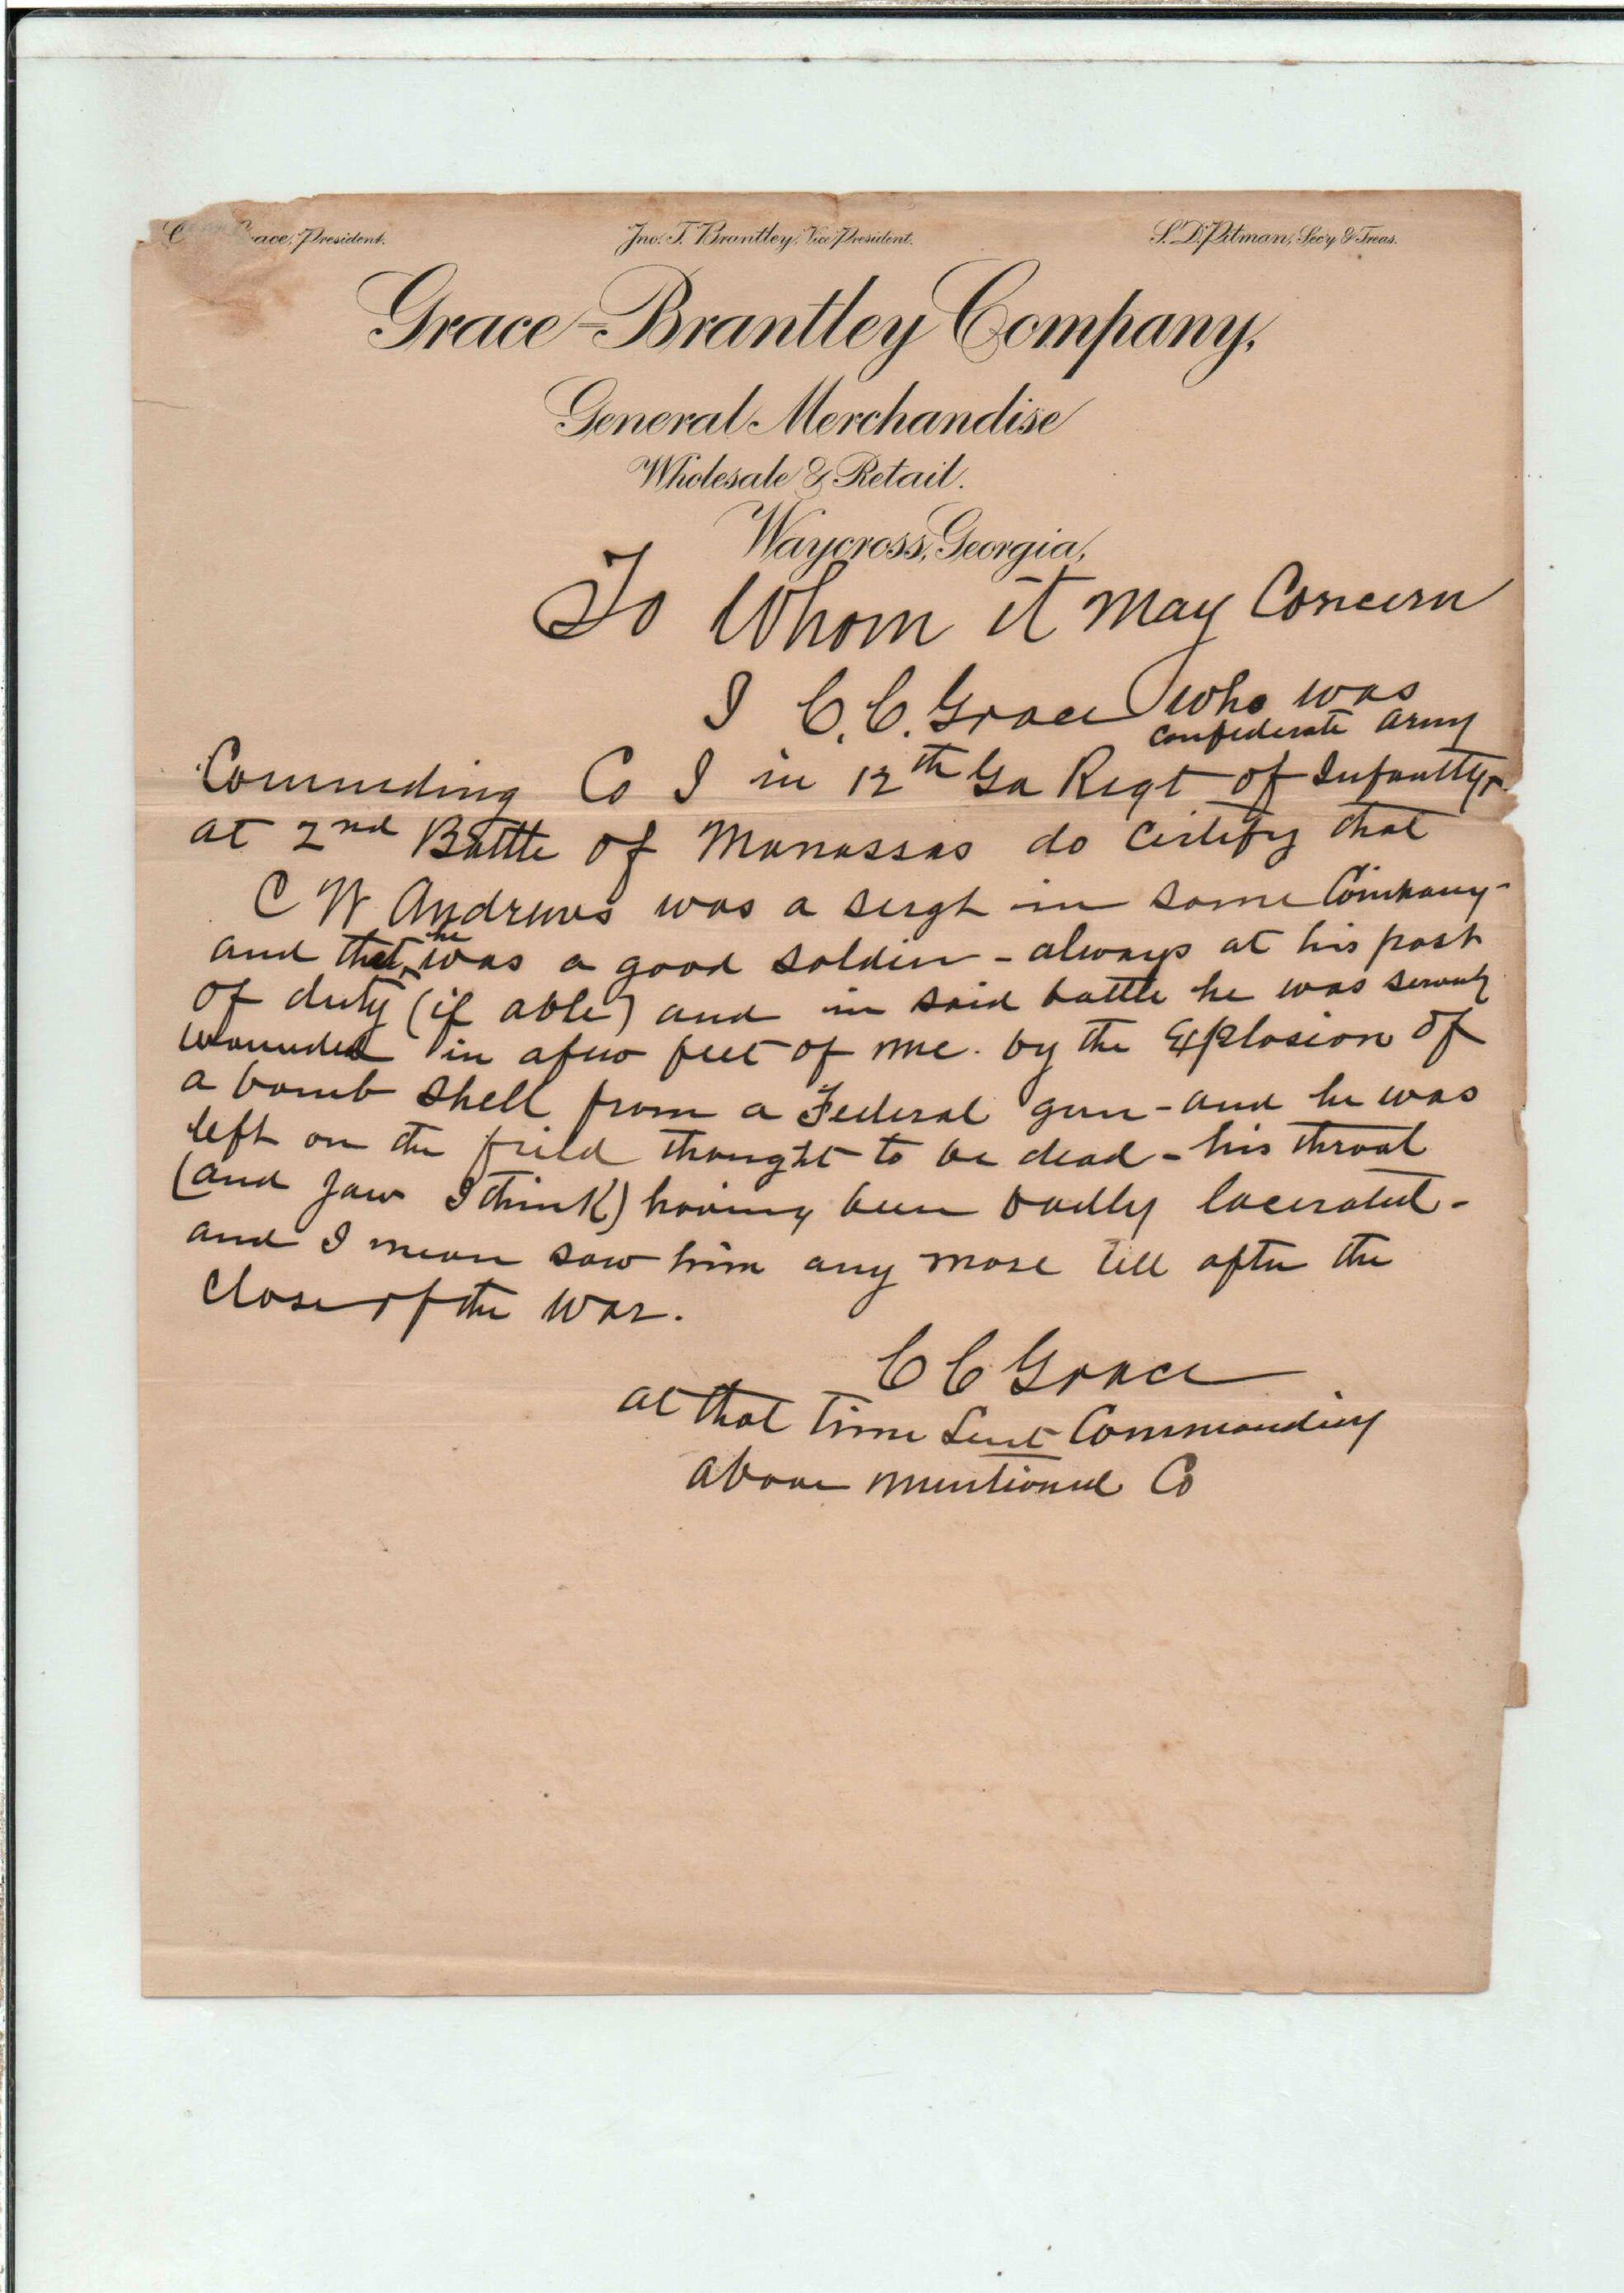 Grace, President. Jno. T. Brantley, Vice President. S. D. Pitman, Secy & Treas.
Grace-Brantley Company,
General Merchandise
Wholesale & Retail.
Waycross, Georgia,
To Whom it may Concern
I C. C. Grace who was
confederate army
Commeding Co I in 12th Ga Regt of Infantty
at 2nd Battle of Manassas do certify that
C W Andrews was a sergt in same Company-
he
and that was a good soldier - always at his post
of duty (if able) and in said battle he was
wounded in afew feet of me. by the Explosion of
a bomb shell from a Federal gun - and he was
left on the field thought to be dead - his throat
(and Jaw I think) having been badly lacerated -
and I never saw him any more till after the
close of the war.
C C Grace
at that time Leut Commanding
above mentioned Co